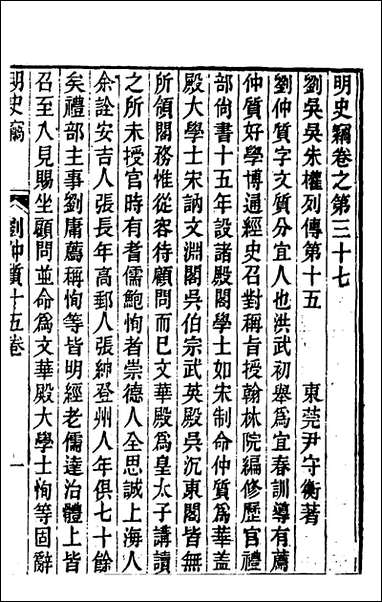 明史竊卷之第三十七
劉吳吳朱權列傳第十五
東莞尹守衡著
劉仲質字文質分宜人也洪武初舉爲宜春訓導有薦
仲質好學博通經史召對稱旨授翰林院編修歷官禮
部尚書十五年設諸殿閣學士如宋制命仲質爲華蓋
殿大學士宋訥文淵閣吳伯宗武英殿吳沉東閣皆無
所領閣務惟從容待顧問而已文華殿爲皇太子講讀
之所未授官時有耆儒鮑恂者崇德人全思誠上海人
余詮安吉人張長年高郵人張紳登州人年俱七十餘
矣禮部主事劉庸薦稱恂等皆明經老儒達治體上皆
召至入見賜坐顧問並命爲文華殿大學士恂等固辭
明史竊
劉仲質十五卷
一